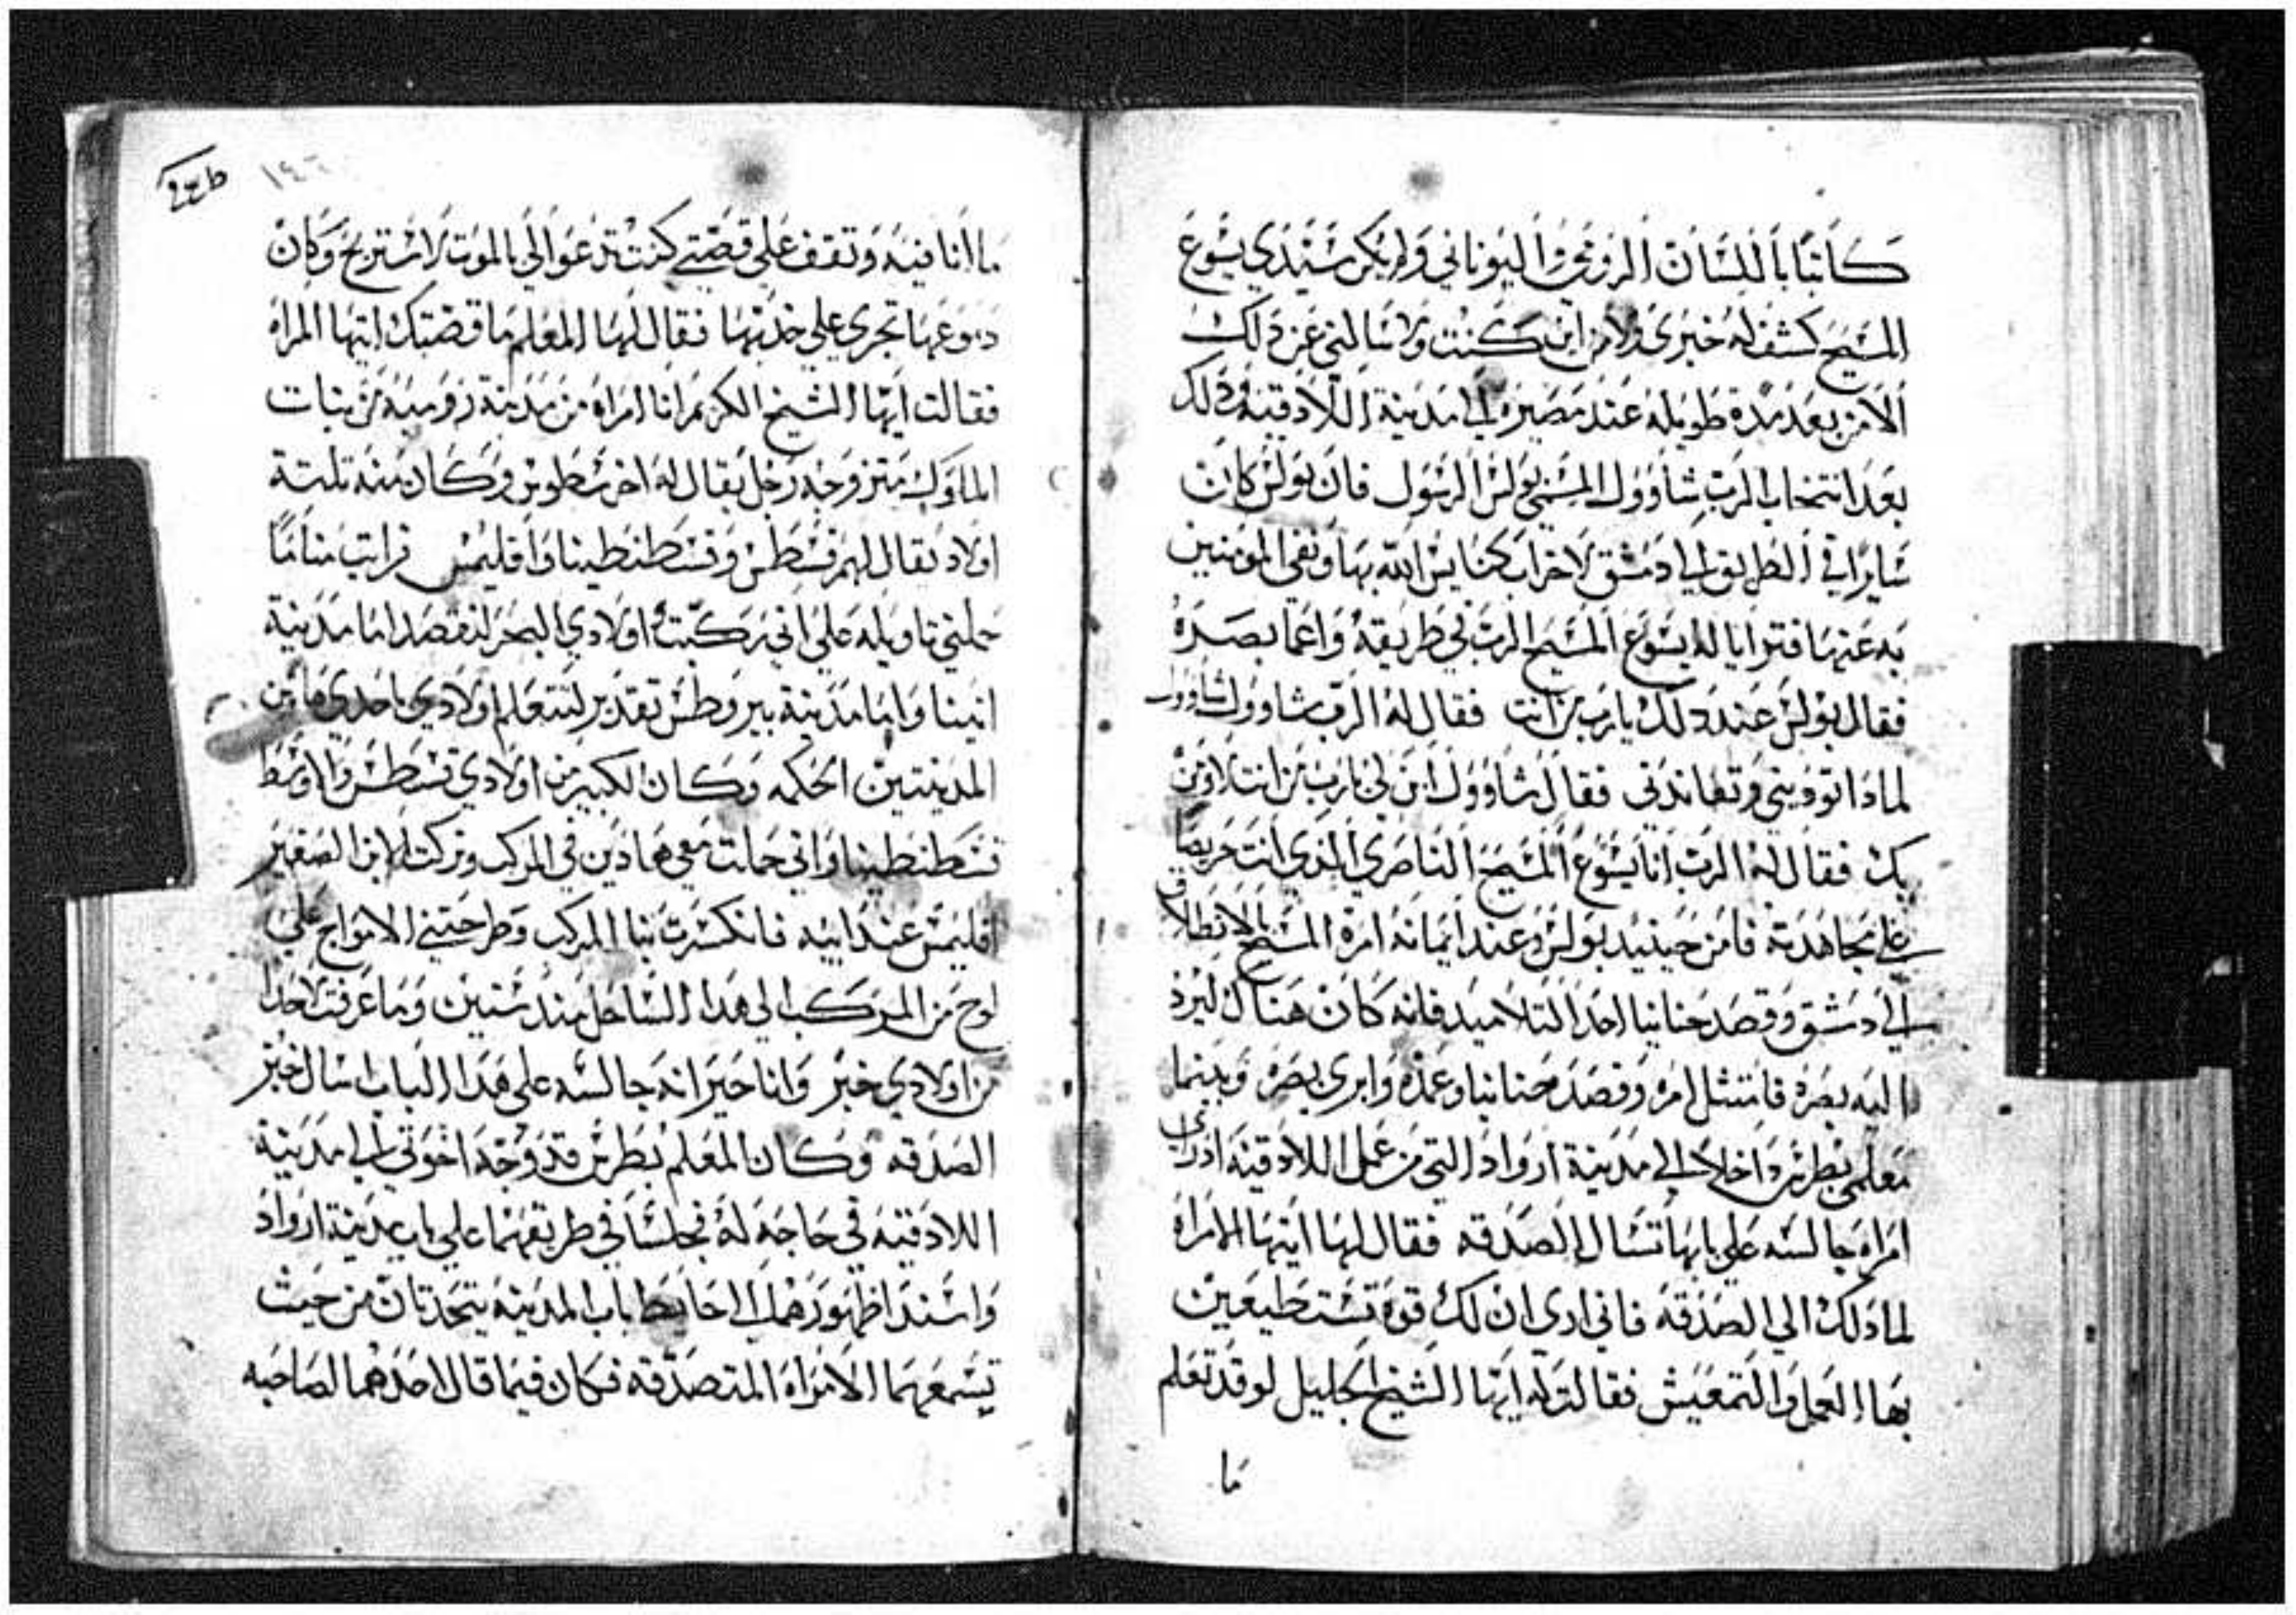 كاتبًا باللسان الرومي واليوناني ولم يكن سيدي يسوع
المسيح كشف له خبري ولا من اين كنت ولا سالني عن ذلك
الا من بعد مدة طويله عند مصيره الي مدينة اللادقيه وذلك
بعد انتخاب الرب شاوول المسمي بولس الرسول فان بولس كان
سايرًا في الطريق الي دمشق لاخراب كنايس الله بها ونفي المومنين
به عنها فترايا له يسوع المسيح الرب في طريقه واعما بصره
فقال بولس عند ذلك يارب من انت فقال له الرب شاوول شاوول
لماذا توديني وتعاندني فقال شاوول اين لي يارب من انت لاومن
بك فقال له الرب انا يسوع المسيح الناصري الذي انت حريصًا
علي مجاهدته فامن حينيد بولس وعند ايمانه امره المسيح بالانطلاق
الي دمشق وقصد حنانيا احد التلاميد فانه كان هناك ليرد
اليه بصره فامتثل امره وقصد حنانيا وعمده وابري بصره وبينما
معلمي بطرس داخلا الي مدينة ارواد التي من عمل اللادقيه ادراي
امراه جالسه علي بابها تسال الصدقه فقال لها ايتها الامراه
لماذلك الي الصدقه فاني اري ان لك قوه تستطيعين
بها العمل والتمعيش فقالت له ايها الشيخ الجليل لو قد تعلم
ما
١٤٦
ما انا فيه وتقف علي قصتي كنت تدعوا لي بالموت لاستريح وكان
دموعها تجري علي خديها فقال لها المعلم ما قصتك ايتها المراه
فقالت ايها الشيخ الكريم انا امراه من مدينة روميه من بنات
الملوك متزوجه رجل يقال له اخرسطوس وكاد منه تلتة
اولاد يقال لهم قسطس وقسطنطينا واقليمس فرايت منامًا
حملني تاويله علي اني ركبت واولادي البحر لنقصد اما مدينة
اتينا واما مدينة بيروطس تقدير لتتعلم اولادي باحدي هاتين
المدينتين الحكمه وكان الكبير من اولادي قسطس والاوسط
قسطنطينا واني حملت معي هادين في المركب وتركت الابن الصغير
اقليمس عند ابيه فانكسرت بنا المركب وطرحتني الامواج علي
لوح من المركب الي هدا الساحل مند سنتين وما عرفت لاحدا
من اولادي خبر وانا حيرانه جالسه علي هدا الباب اسال خبز
الصدقه وكان المعلم بطرس قد وجه اخوتي الي مدينة
اللادقيه في حاجه له فجلسا في طريقهما علي باب مدينة ارواد
واسندا ظهورهما الي احايط باب المدينه يتحدتان من حيث
تسمعهما الامراه المتصدقه فكان فيما قال احدهما لصاحبه